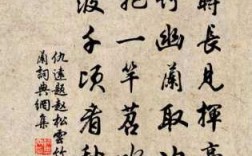 時長見揮毫
竹幽蘭取次
把一竿苕水
波千頃看秋
仇遠題趙松雪竹
蘭詞典網集